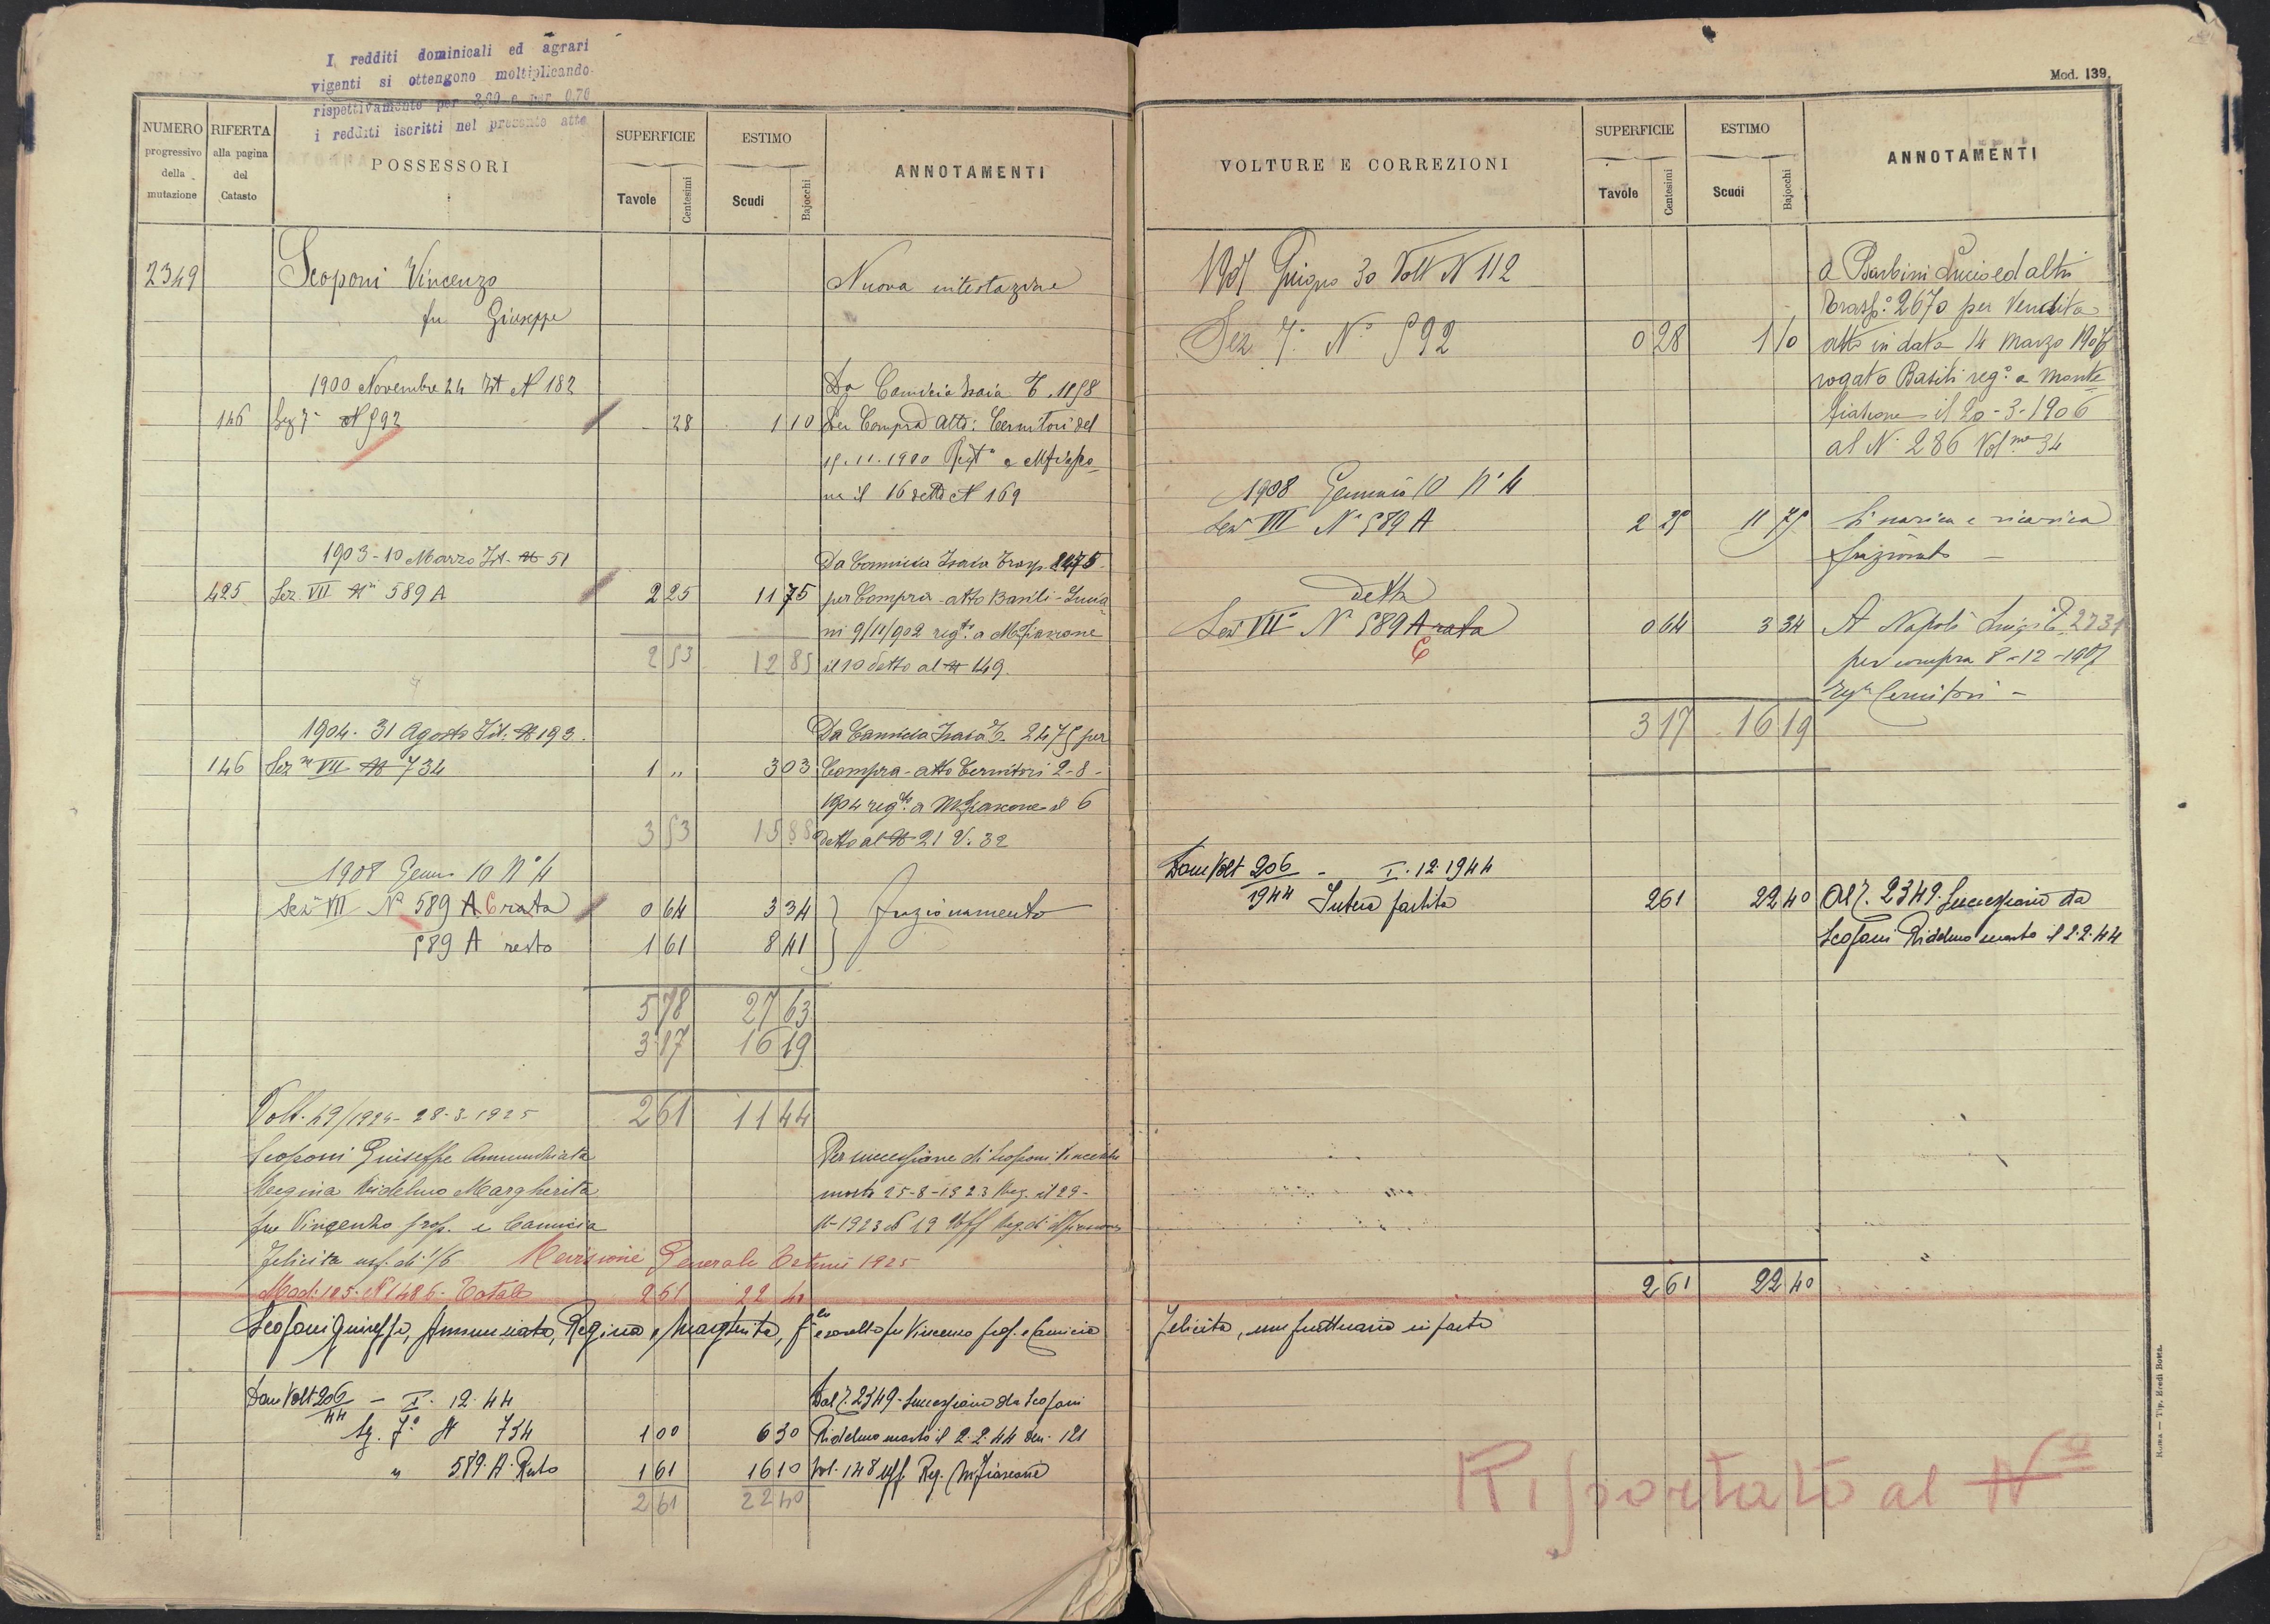 I redditi dominicali ed agrari
vigenti si ottengono moltiplicando
rispettivamente per 3,00 e per 0,70
i redditi iscritti nel presente atto
NUMERO progressivo della mutazione
RIFERTA alla pagina del Catasto
POSSESSORI
SUPERFICIE
Tavole Centesimi
ESTIMO
Scudi Bajocchi
ANNOTAMENTI
2349 Scoponi Vincenzo Nuova intestazione
fu Giuseppe
1900 Novembre 24 N 182 Da Camicia Isaia
146 Sez 7a N 592 - 28 1 10 Per Compra Atto: Cernitori del
15.11.1900 Regto a Mfiasco-
ne il 16 detto N 169
1903-10 Marzo N 51 Da Camicia Isaia Trasp. 2475
425 Sez. VII N 589 A 2 25 11 75 per Compra - atto Basili-Lucia
ni 9/11/902 regto a Mfiascone
2 53 12 85 il 10 detto al N 149.
1904. 31 Agosto N 193. Da Camicia Isaia T. 2475 per
146 Sezne VII N 734 1 " 3 03 Compra - atto Cernitori 2-8-
1904 regto a Mfiascone il 6
3 53 15 88 detto al N 21 V. 32
1908 Genn 10 N° 4
Sezne VII N° 589 A C rata 0 64 3 34 frazionamento
589 A resto 1 61 8 41
5 78 27 63
3 17 16 19
2 61 11 44
Volt. 49/1924 - 28-3-1925
Scoponi Giuseppe Annunziata Per successione di Scoponi Vincenzo
Regina Ridelmo Margherita morto 25-8-1923 Reg. il 29-
fu Vincenzo prop. e Camicia 11-1923 N 19 Uff Reg. di Mfiascone
Felicita usf. di 1/6 Revisione Generale Estimi 1925
Mod: 105. N 1486. Totale 2 61 22 40
Scoponi Giuseppe, Annunziata, Regina e Margherita, flli e sorelle fu Vincenzo prop. e Camicia
Dom Volt 206/44 - I. 12. 44 Dal T. 2349 - Successione da Scoponi
Sz. 7a N 734 1 00 6 30 Ridelmo morto il 2.2.44 den. 121
" 589. A. Resto 1 61 16 10 Vol. 148 uff. Reg. Mfiascone
2 61 22 40
Mod. 139.
VOLTURE E CORREZIONI
SUPERFICIE
Tavole Centesimi
ESTIMO
Scudi Bajocchi
ANNOTAMENTI
1907 Giugno 30 Volt N 112 a Barbini Lucio ed altri
Trasp° 2670 per Vendita
Sez 7a N° 592 0 28 1 10 atto in data 14 Marzo
rogato Basili reg° a Monte
fiascone il 20-3-1906
al N° 286 Volme 34
1908 Gennaio 10 N° 4
Sezne VII N° 589 A 2 25 11 75 Si scarica e ricarica
frazionato -
detta
Sezne VII N° 589 A rata C 0 64 3 34 A Napoli Luigi T. 2731
per compra 8-12-1907
Cernitori -
3 17 16 19
Dom Volt 206/1944 - I. 12. 1944
Intera partita 2 61 22 40 Al T. 2349. Successione da
Scoponi Ridelmo morto il 2.2.44
2 61 22 40
Felicita, usufruttuaria in parte
Riportato al No
Roma — Tip. Eredi Botta.